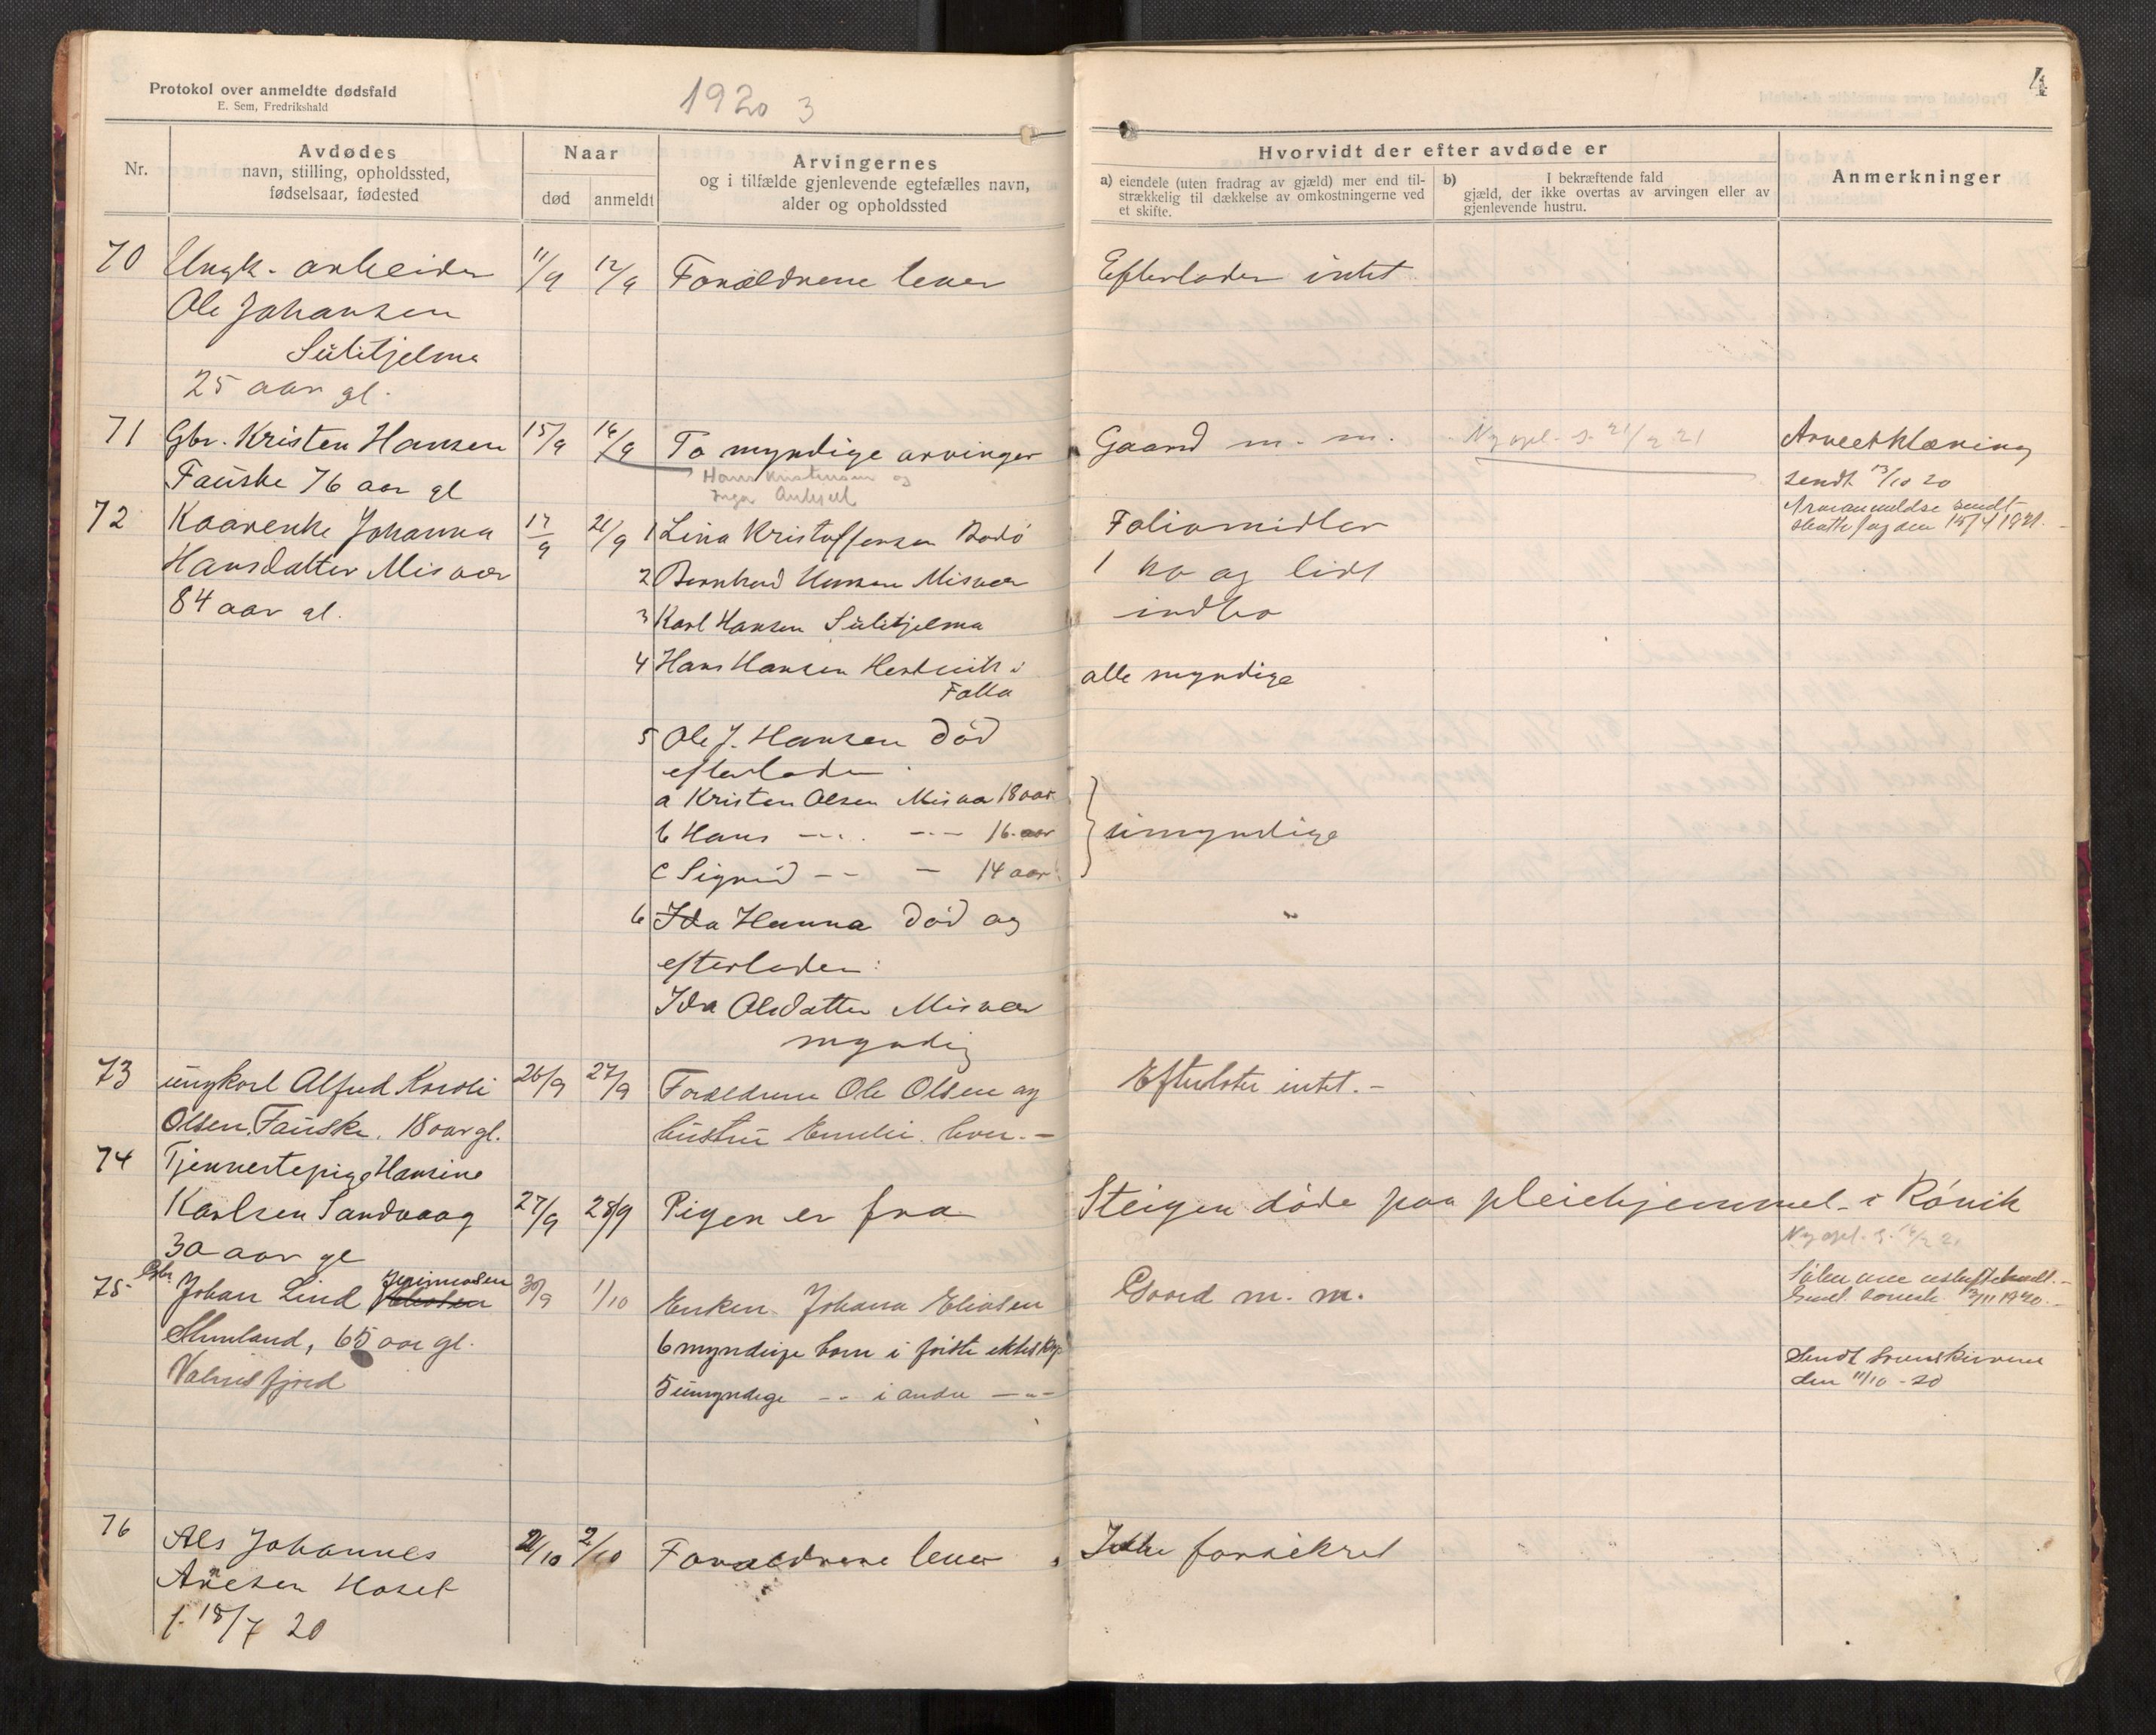 Protokol over anmeldte dødsfald
E. Sem, Fredrikshald
1920 3
4
Nr.
Avdødes
navn, stilling, opholdssted,
fødselsaar, fødested
Naar
død
anmeldt
Arvingernes
og i tilfælde gjenlevende egtefælles navn,
alder og opholdssted
Hvorvidt der efter avdøde er
a) eiendele (uten fradrag av gjæld) mer end til-
strækkelig til dækkelse av omkostningerne ved
et skifte.
b) I bekræftende fald
gjæld, der ikke overtas av arvingen eller av
gjenlevende hustru.
Anmerkninger
70 Ungk. arbeider 11/9 12/9 Forældrene lever Efterlader intet
Ole Johansen
Sulitjelma
25 aar gl.
71 Gbr. Kristen Hansen 15/9 16/9 To myndige arvinger Gaard m. m. 21/2 21
Fauske 76 aar gl
Hans Kristensen og
Inga
sendt 13/10 20
sendt
15/4 1921.
72 Kaarenke Johanna 17/9 21/9 1 Lina Kristoffersen Bodö Foliomidler
Hansdatter Misvær 2 Bernhard Hansen Misvær 1 ko og lidt
84 aar gl. 3 Karl Hansen Sulitjelma indbo
4 Hans Hansen i alle myndige
Folla
5 Ole J. Hansen död
efterlader
a Kristen Olsen Misvær 18 aar
b Hans — — 16 aar umyndige
c Sigrid — — 14 aar
6 Ida Hanna död og
efterlader:
Ida Olsdatter Misvær
myndig
73 ungkarl Alfred Karoli 26/9 27/9 Forældrene Ole Olsen og Efterlater intet. –
Olsen, Fauske. 18 aar gl. hustru Emelie lever. –
74 Tjenestepige Hansine
Karlsen Sandvaag 27/9 28/9 Pigen er fra Steigen döde paa pleiehjemmet i Rönvik
30 aar gl
75 Gbr. Johan Lind 30/9 1/10 Enken Johana Eliasen Gaard m. m.
65 aar gl. 6 myndige barn i förste ektesk
Valnesfjord 5 umyndige – – i andre – – –
Sendt
den 11/10 - 20
76 Als Johannes 2/10 2/10 Forældrene lever Ikke forsikret
Hoset
f. 18/7 20